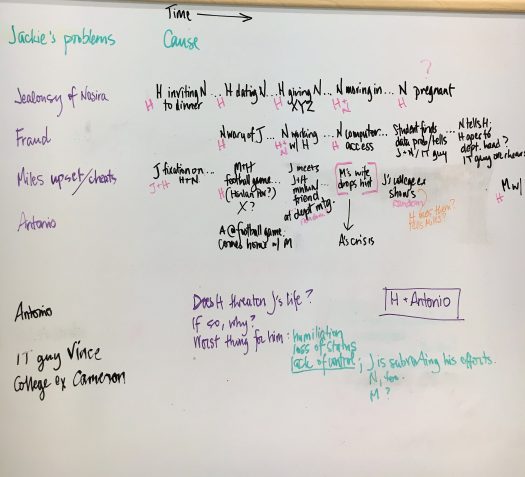 Time →
Jackie's problems
Cause
?
Jealousy of Nasira
H inviting N... H dating N... H giving N... N moving in... N pregnant
to dinner XYZ
H H H H+N H
Fraud
N wary of J... N working... N computer... Student finds N tells H;
w/ H access data prob/tells H goes to
J+N/IT guy dept. head?
H H+N H IT guy
Miles upset/cheats
J fixation on... M+H J meets... M's wife J's college ex M w/
H+N football game... J+H drops him shows
(Harlan Fox?) mutual randomly
X? friend H met them?
at dept mtg. tells Miles?
J+H H random H
Antonio
A @ football game,
A's crisis
Antonio
IT guy Vince
College ex Cameron
Does H threaten J's life?
If so, why?
Worst thing for him: humiliation
loss of status
lack of control; J is subverting his efforts.
N, too.
M?
H + Antonio